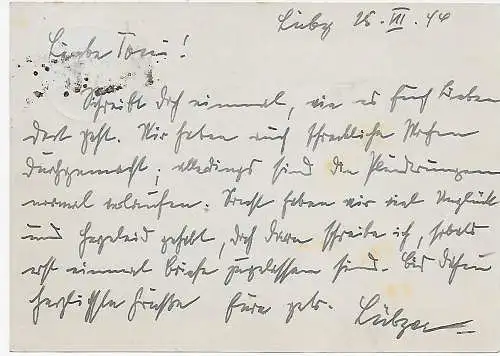 Lübz 25. VII. 44
Liebe Toni!
Schreibt doch einmal, wie es Euch Lieben
dort geht. Wir haben auch schreckliche Wochen
durchgemacht; allerdings sind die Plünderungen
normal verlaufen. Sonst haben wir viel Unglück
und Herzeleid gehabt, doch davon schreibe ich, sobald
erst einmal Briefe zugelassen sind. Bis dahin
herzlichste Grüße Eure getr. Lübzer